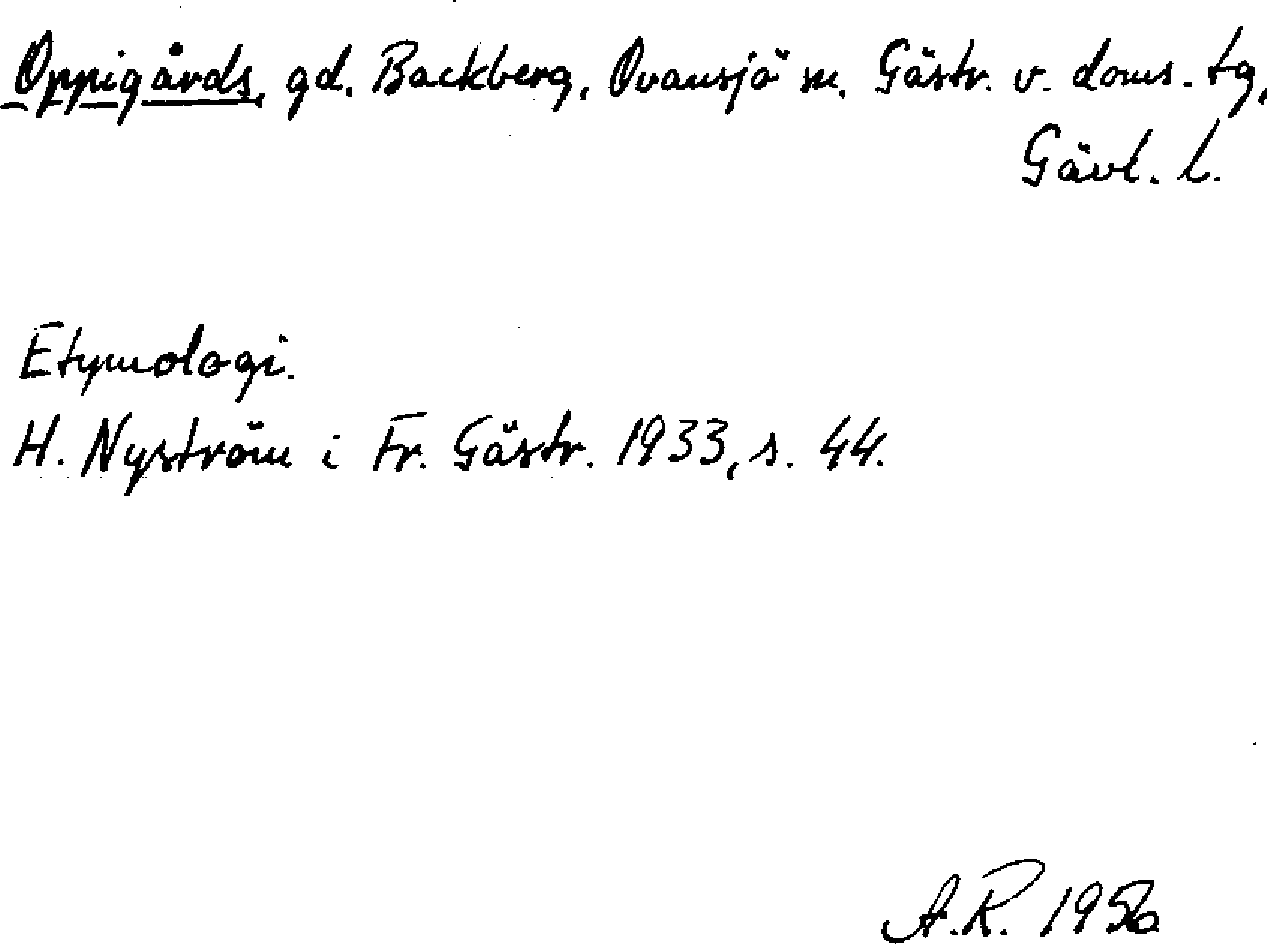 Oppigårds, gd. Backberg, Ovansjö sn. Gästr. v. doms. tg,
Gävl. l.
Etymologi.
H. Nyström i Fr. Gästr. 1933, s. 44.
A.R. 1956